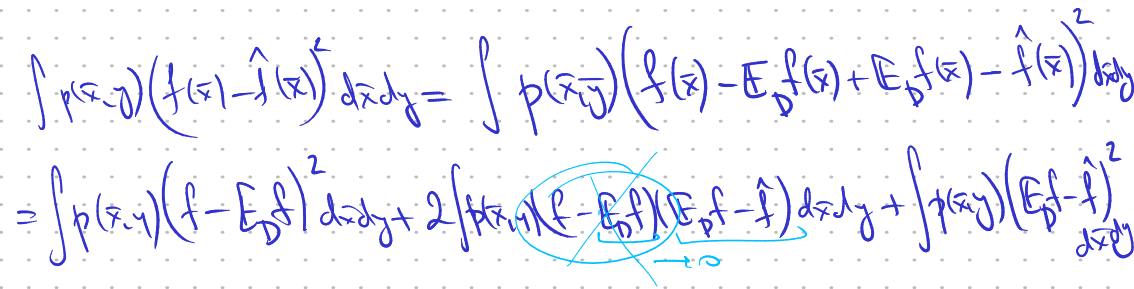 ∫ p(x̄,y)(f(x̄) - f̂(x̄))² dx̄dy = ∫ p(x̄,ȳ)(f(x̄) - 𝔼_D f(x̄) + 𝔼_D f(x̄) - f̂(x̄))² dx̄dy
= ∫ p(x̄,y)(f - 𝔼_D f)² dx̄dy + 2∫ p(x̄,y)(f - 𝔼_D f)(𝔼_D f - f̂) dx̄dy + ∫ p(x̄,y)(𝔼_D f - f̂)² dx̄dy
→ 0